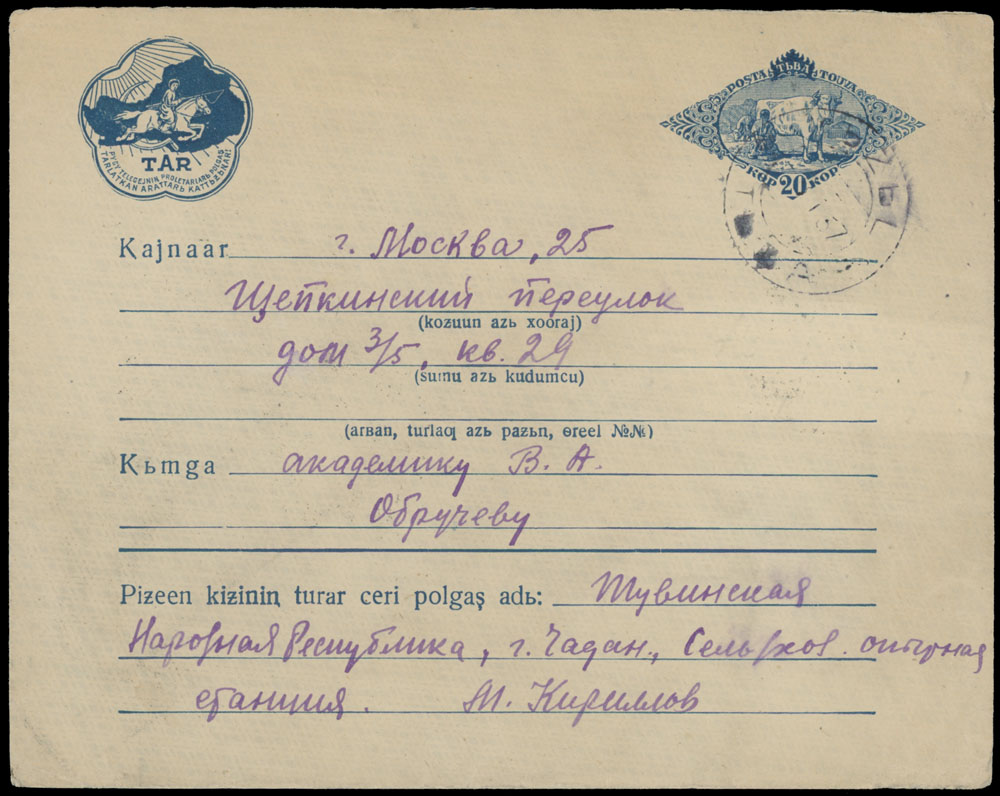 POSTA TЬBA TOUVA
KOP 20 KOP
TAR
PYGY TELEGEJNIŊ PROLETARIARЬ POLGAŞ
TARLATKAN ARATTARЬ KATTЬƵЬŊAR!
Kajnaar г. Москва, 25
Щепкинский переулок
(kozuun azь xooraj)
дом 3/5, кв. 29
(sumu azь kudumcu)
(arвan, turlaq azь paƶьn, ɵreel №№)
Kьmga академику В. А.
Обручеву
Piƶeen kiƶiniŋ turar ceri polgaş adь: Тувинская
Народная Республика, г. Чадан., Сельхоз. опытная
станция. М. Кириллов